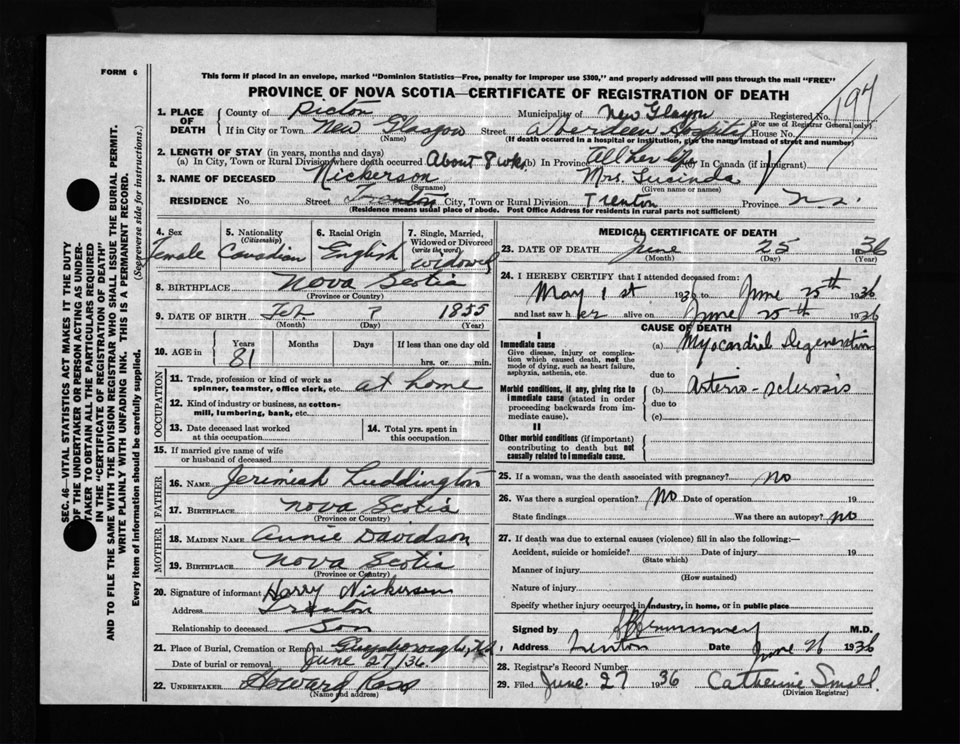 FORM 6
This form if placed in an envelope, marked "Dominion Statistics—Free, penalty for improper use $300," and properly addressed will pass through the mail "FREE"
PROVINCE OF NOVA SCOTIA—CERTIFICATE OF REGISTRATION OF DEATH
197
1. PLACE OF DEATH County of Pictou Municipality of New Glasgow Registered No.
(For use of Registrar General only)
If in City or Town New Glasgow Street Aberdeen Hospital House No.
(Name) (If death occurred in a hospital or institution, give the name instead of street and number)
2. LENGTH OF STAY (in years, months and days)
(a) In City, Town or Rural Division where death occurred About 8 wks (b) In Province All her life In Canada (if immigrant)
3. NAME OF DECEASED Nickerson Mrs. Lucinda
(Surname) (Given name or names)
RESIDENCE No. Street Trenton City, Town or Rural Division Trenton Province N.S.
(Residence means usual place of abode. Post Office Address for residents in rural parts not sufficient)
4. Sex Female
5. Nationality (Citizenship) Canadian
6. Racial Origin English
7. Single, Married, Widowed or Divorced (write the word) Widowed
8. BIRTHPLACE Nova Scotia
(Province or Country)
9. DATE OF BIRTH Feb. ? 1855
(Month) (Day) (Year)
10. AGE in Years 81 Months Days If less than one day old
hrs. or min.
OCCUPATION
11. Trade, profession or kind of work as spinner, teamster, office clerk, etc. at home
12. Kind of industry or business, as cotton-mill, lumbering, bank, etc.
13. Date deceased last worked at this occupation
14. Total yrs. spent in this occupation
15. If married give name of wife or husband of deceased
FATHER
16. NAME Jerimiah Luddington
17. BIRTHPLACE Nova Scotia
(Province or Country)
MOTHER
18. MAIDEN NAME Annie Davidson
19. BIRTHPLACE Nova Scotia
(Province or Country)
20. Signature of informant Harry Nickerson
Address Trenton
Relationship to deceased Son
21. Place of Burial, Cremation or Removal Guysborough, N.S.
Date of burial or removal June 27/36
22. UNDERTAKER Howard Ross
(Name and address)
MEDICAL CERTIFICATE OF DEATH
23. DATE OF DEATH June 25 1936
(Month) (Day) (Year)
24. I HEREBY CERTIFY that I attended deceased from:
May 1st 1936 to June 25th 1936
and last saw her alive on June 25th 1936
CAUSE OF DEATH
I
Immediate cause
Give disease, injury or complication which caused death, not the mode of dying, such as heart failure, asphyxia, asthenia, etc.
(a) Myocardial Degeneration
due to
Morbid conditions, if any, giving rise to immediate cause (stated in order proceeding backwards from immediate cause).
(b) Arterio-sclerosis
due to
(c)
II
Other morbid conditions (if important) contributing to death but not causally related to immediate cause.
25. If a woman, was the death associated with pregnancy? no
26. Was there a surgical operation? No Date of operation 19
State findings Was there an autopsy? no
27. If death was due to external causes (violence) fill in also the following:—
Accident, suicide or homicide? Date of injury 19
(State which)
Manner of injury
(How sustained)
Nature of injury
Specify whether injury occurred in industry, in home, or in public place
Signed by M.D.
Address Trenton Date June 26 1936
28. Registrar's Record Number
29. Filed June 27 1936 Catherine Small
(Division Registrar)
SEC. 46—VITAL STATISTICS ACT MAKES IT THE DUTY
OF THE UNDERTAKER OR PERSON ACTING AS UNDER-
TAKER TO OBTAIN ALL THE PARTICULARS REQUIRED
IN THE "CERTIFICATE OF REGISTRATION OF DEATH"
AND TO FILE THE SAME WITH THE DIVISION REGISTRAR WHO SHALL ISSUE THE BURIAL PERMIT.
WRITE PLAINLY WITH UNFADING INK. THIS IS A PERMANENT RECORD.
Every item of information should be carefully supplied. (See reverse side for instructions.)